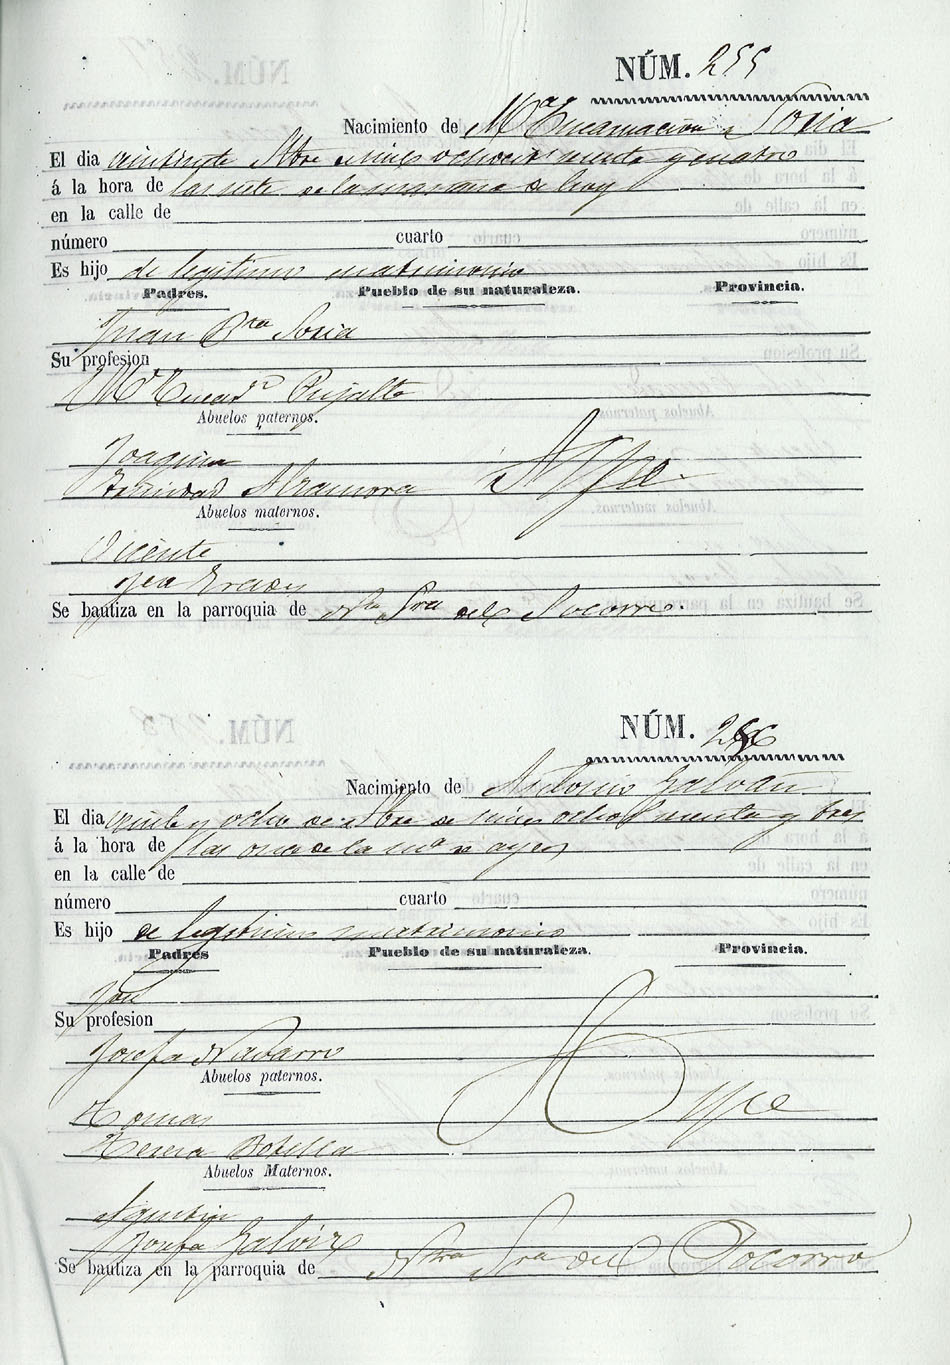 NÚM. 255
Nacimiento de Mª Encarnacion Soria
El dia veintisiete de mil ochocis noventa y cuatro
á la hora de las siete de la mañana de hoy
en la calle de
número cuarto
Es hijo de legitimo matrimonio
Padres. Pueblo de su naturaleza. Provincia.
Juan Bta Soria
Su profesion
Mª Encarn Pujalte
Abuelos paternos.
Joaquin
Trinidad Alzamora Aspe.
Abuelos maternos.
Vicente
Se bautiza en la parroquia de Ntra Sra del Socorro.
NÚM. 256
Nacimiento de Antonio Galvañ
El dia veinte y ocho de de mil ocho noventa y tres
á la hora de las once de la mª de ayer
en la calle de
número cuarto
Es hijo de legitimo matrimonio
Padres Pueblo de su naturaleza. Provincia.
José
Su profesion
Josefa Navarro
Abuelos paternos.
Tomas Aspe
Teresa Botella
Abuelos Maternos.
Agustin
Josefa Galvis
Se bautiza en la parroquia de Ntra Sra del Socorro